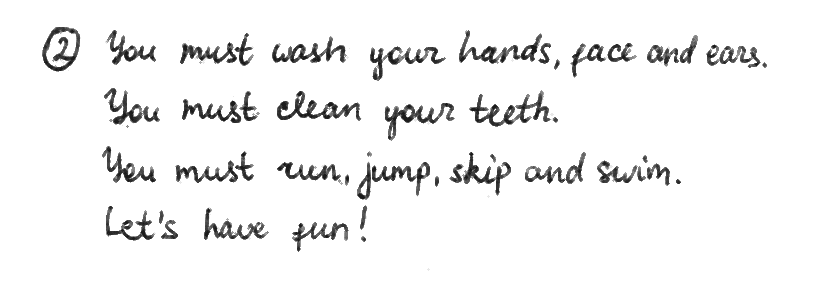 ② You must wash your hands, face and ears.
You must clean your teeth.
You must run, jump, skip and swim.
Let's have fun!